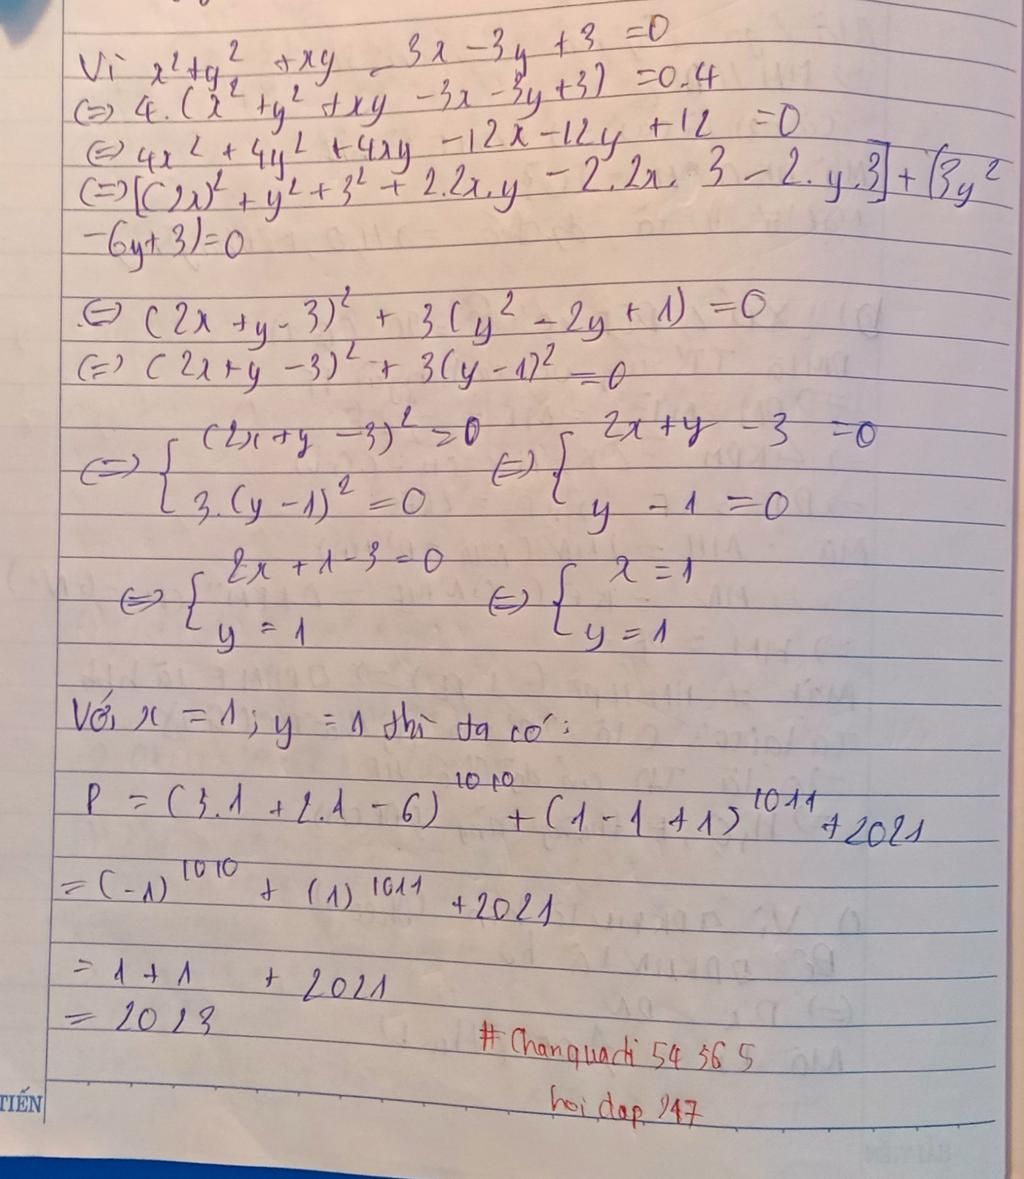 Vì x²+y² +xy - 3x -3y +3 =0
(=) 4.(x² +y² +xy -3x -3y+3) =0.4
(=) 4x² + 4y² + 4xy -12x -12y +12 =0
(=) [(2x)² + y² + 3² + 2.2x.y - 2.2x. 3 - 2.y.3] + (3y²
-6y+3)=0
(=) (2x +y - 3)² + 3(y² - 2y + 1) =0
(=) (2x+y -3)² + 3(y -1)² =0
(=) { (2x+y -3)² =0 (=) { 2x+y -3 =0
3.(y -1)² =0 y -1 =0
(=) { 2x +1-3=0 (=) { x =1
y = 1 y =1
Với x =1; y = 1 thì ta có:
P = (3.1 +2.1 -6)¹⁰¹⁰ + (1-1+1)¹⁰¹¹ +2021
= (-1)¹⁰¹⁰ + (1)¹⁰¹¹ +2021
= 1 + 1 + 2021
= 2023
# Chanquadi 54 36 5
hoi dap 247
TIẾN